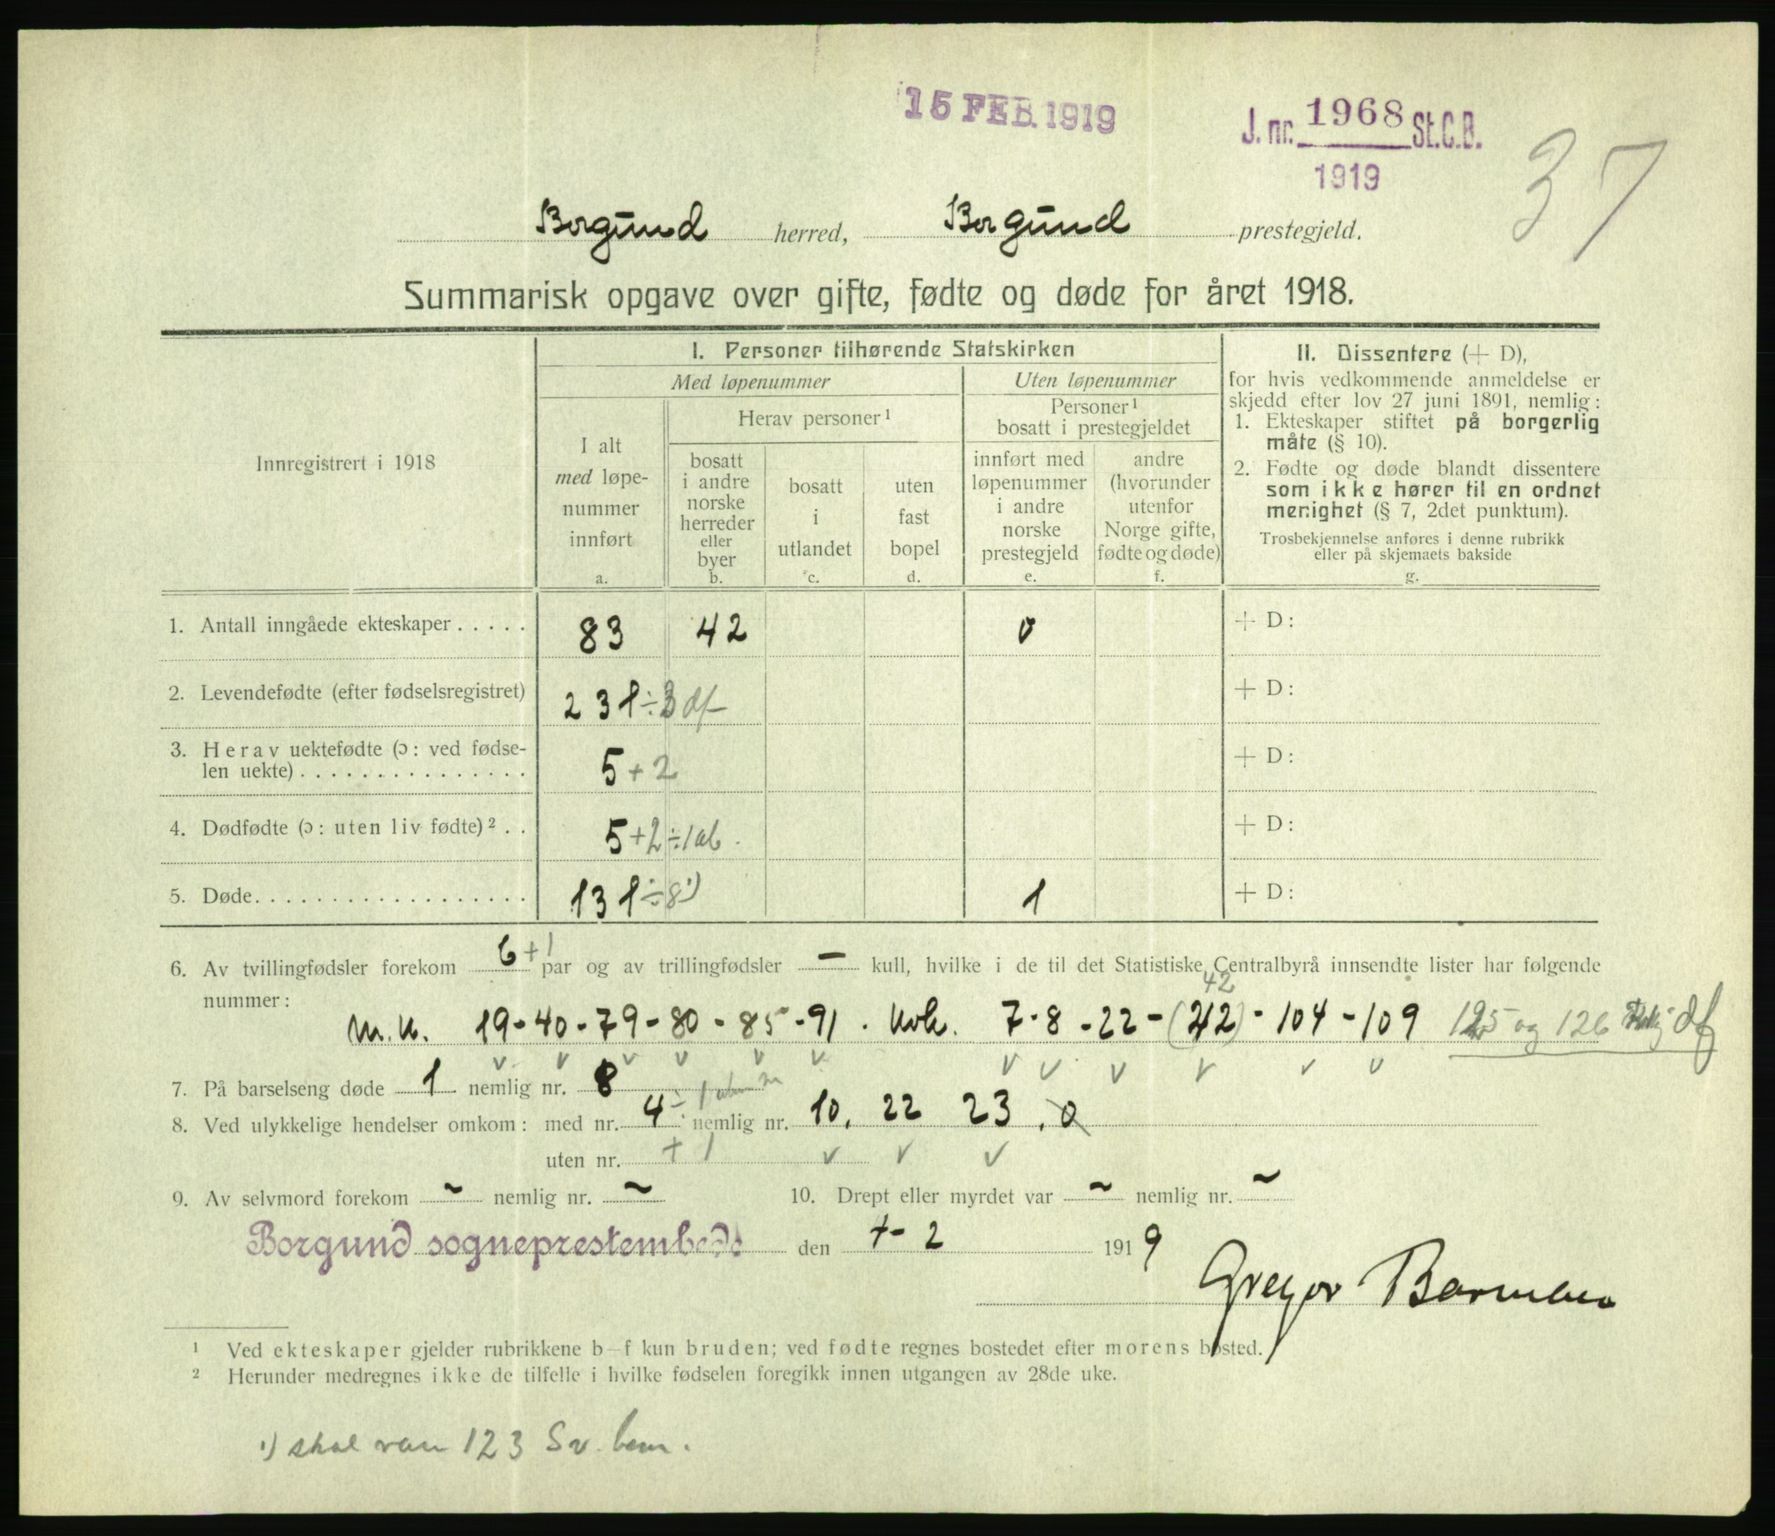 15 FEB. 1919
J. nr. 1968 St.C.B.
1919
37
Borgund herred, Borgund prestegjeld.
Summarisk opgave over gifte, fødte og døde for året 1918.
Innregistrert i 1918
I. Personer tilhørende Statskirken
Med løpenummer
Uten løpenummer
I alt
med løpe-
nummer
innført
a.
Herav personer¹
bosatt
i andre
norske
herreder
eller
byer
b.
bosatt
i
utlandet
c.
uten
fast
bopel
d.
Personer¹
bosatt i prestegjeldet
innført med
løpenummer
i andre
norske
prestegjeld
e.
andre
(hvorunder
utenfor
Norge gifte,
fødte og døde)
f.
II. Dissentere (+ D),
for hvis vedkommende anmeldelse er
skjedd efter lov 27 juni 1891, nemlig:
1. Ekteskaper stiftet på borgerlig
måte (§ 10).
2. Fødte og døde blandt dissentere
som ikke hører til en ordnet
menighet (§ 7, 2det punktum).
Trosbekjennelse anføres i denne rubrikk
eller på skjemaets bakside
g.
1. Antall inngåede ekteskaper..... 83 42 0 + D:
2. Levendefødte (efter fødselsregistret) 231 ÷ 3 df + D:
3. Herav uektefødte (ɔ: ved fødse-
len uekte)............... 5 + 2 + D:
4. Dødfødte (ɔ: uten liv fødte)² .. 5 + 2 ÷ 1 ab. + D:
5. Døde.................. 131 ÷ 8 ¹) 1 + D:
6. Av tvillingfødsler forekom 6 + 1 par og av trillingfødsler – kull, hvilke i de til det Statistiske Centralbyrå innsendte lister har følgende
nummer:
42
m.k. 19 - 40 - 79 - 80 - 85 - 91. kvk. 7 - 8 - 22 - (212) - 104 - 109 125 og 126 df
7. På barselseng døde 1 nemlig nr. 8
8. Ved ulykkelige hendelser omkom: med nr. 4 ÷ 1 nemlig nr. 10, 22 23. 0
uten nr. + 1
9. Av selvmord forekom ~ nemlig nr. ~ 10. Drept eller myrdet var ~ nemlig nr. ~
Borgund sogneprestembede den + - 2 1919
Gregor Barman
¹ Ved ekteskaper gjelder rubrikkene b–f kun bruden; ved fødte regnes bostedet efter morens bosted.
² Herunder medregnes ikke de tilfelle i hvilke fødselen foregikk innen utgangen av 28de uke.
¹) skal være 123 Sv. bem.